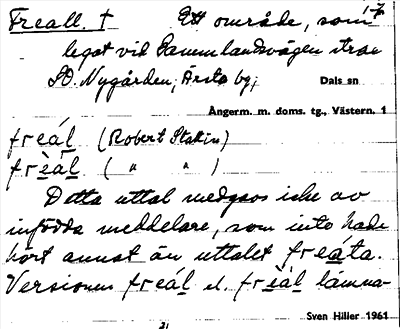 Freall. † Ett område, som 1-7
legat vid Gammlandsvägen strax
SO. Nygården, Ärsta by;
Dals sn
Ångerm. m. doms. tg., Västern. 1
freál (Robert Stakin)
frèàl ( " " )
Detta uttal medgavs icke av
infödda meddelare, som inte hade
hört annat än uttalet freáta.
Versionen freál el. frèàl lämna-
Sven Hiller 1961